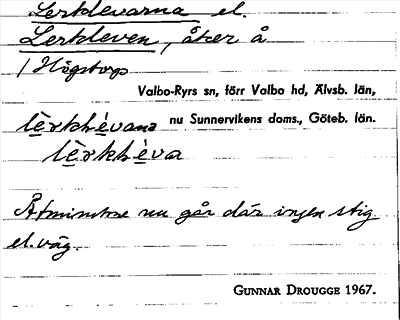 Lerklevarna el.
Lerkleven, åker å
/ Högstorp
Valbo-Ryrs sn, förr Valbo hd, Älvsb. län,
lè̱rkḷè̱vana nu Sunnervikens doms., Göteb. län.
lè̱rkḷè̱va
Åtminstone nu går där ingen stig
el. väg.
GUNNAR DROUGGE 1967.